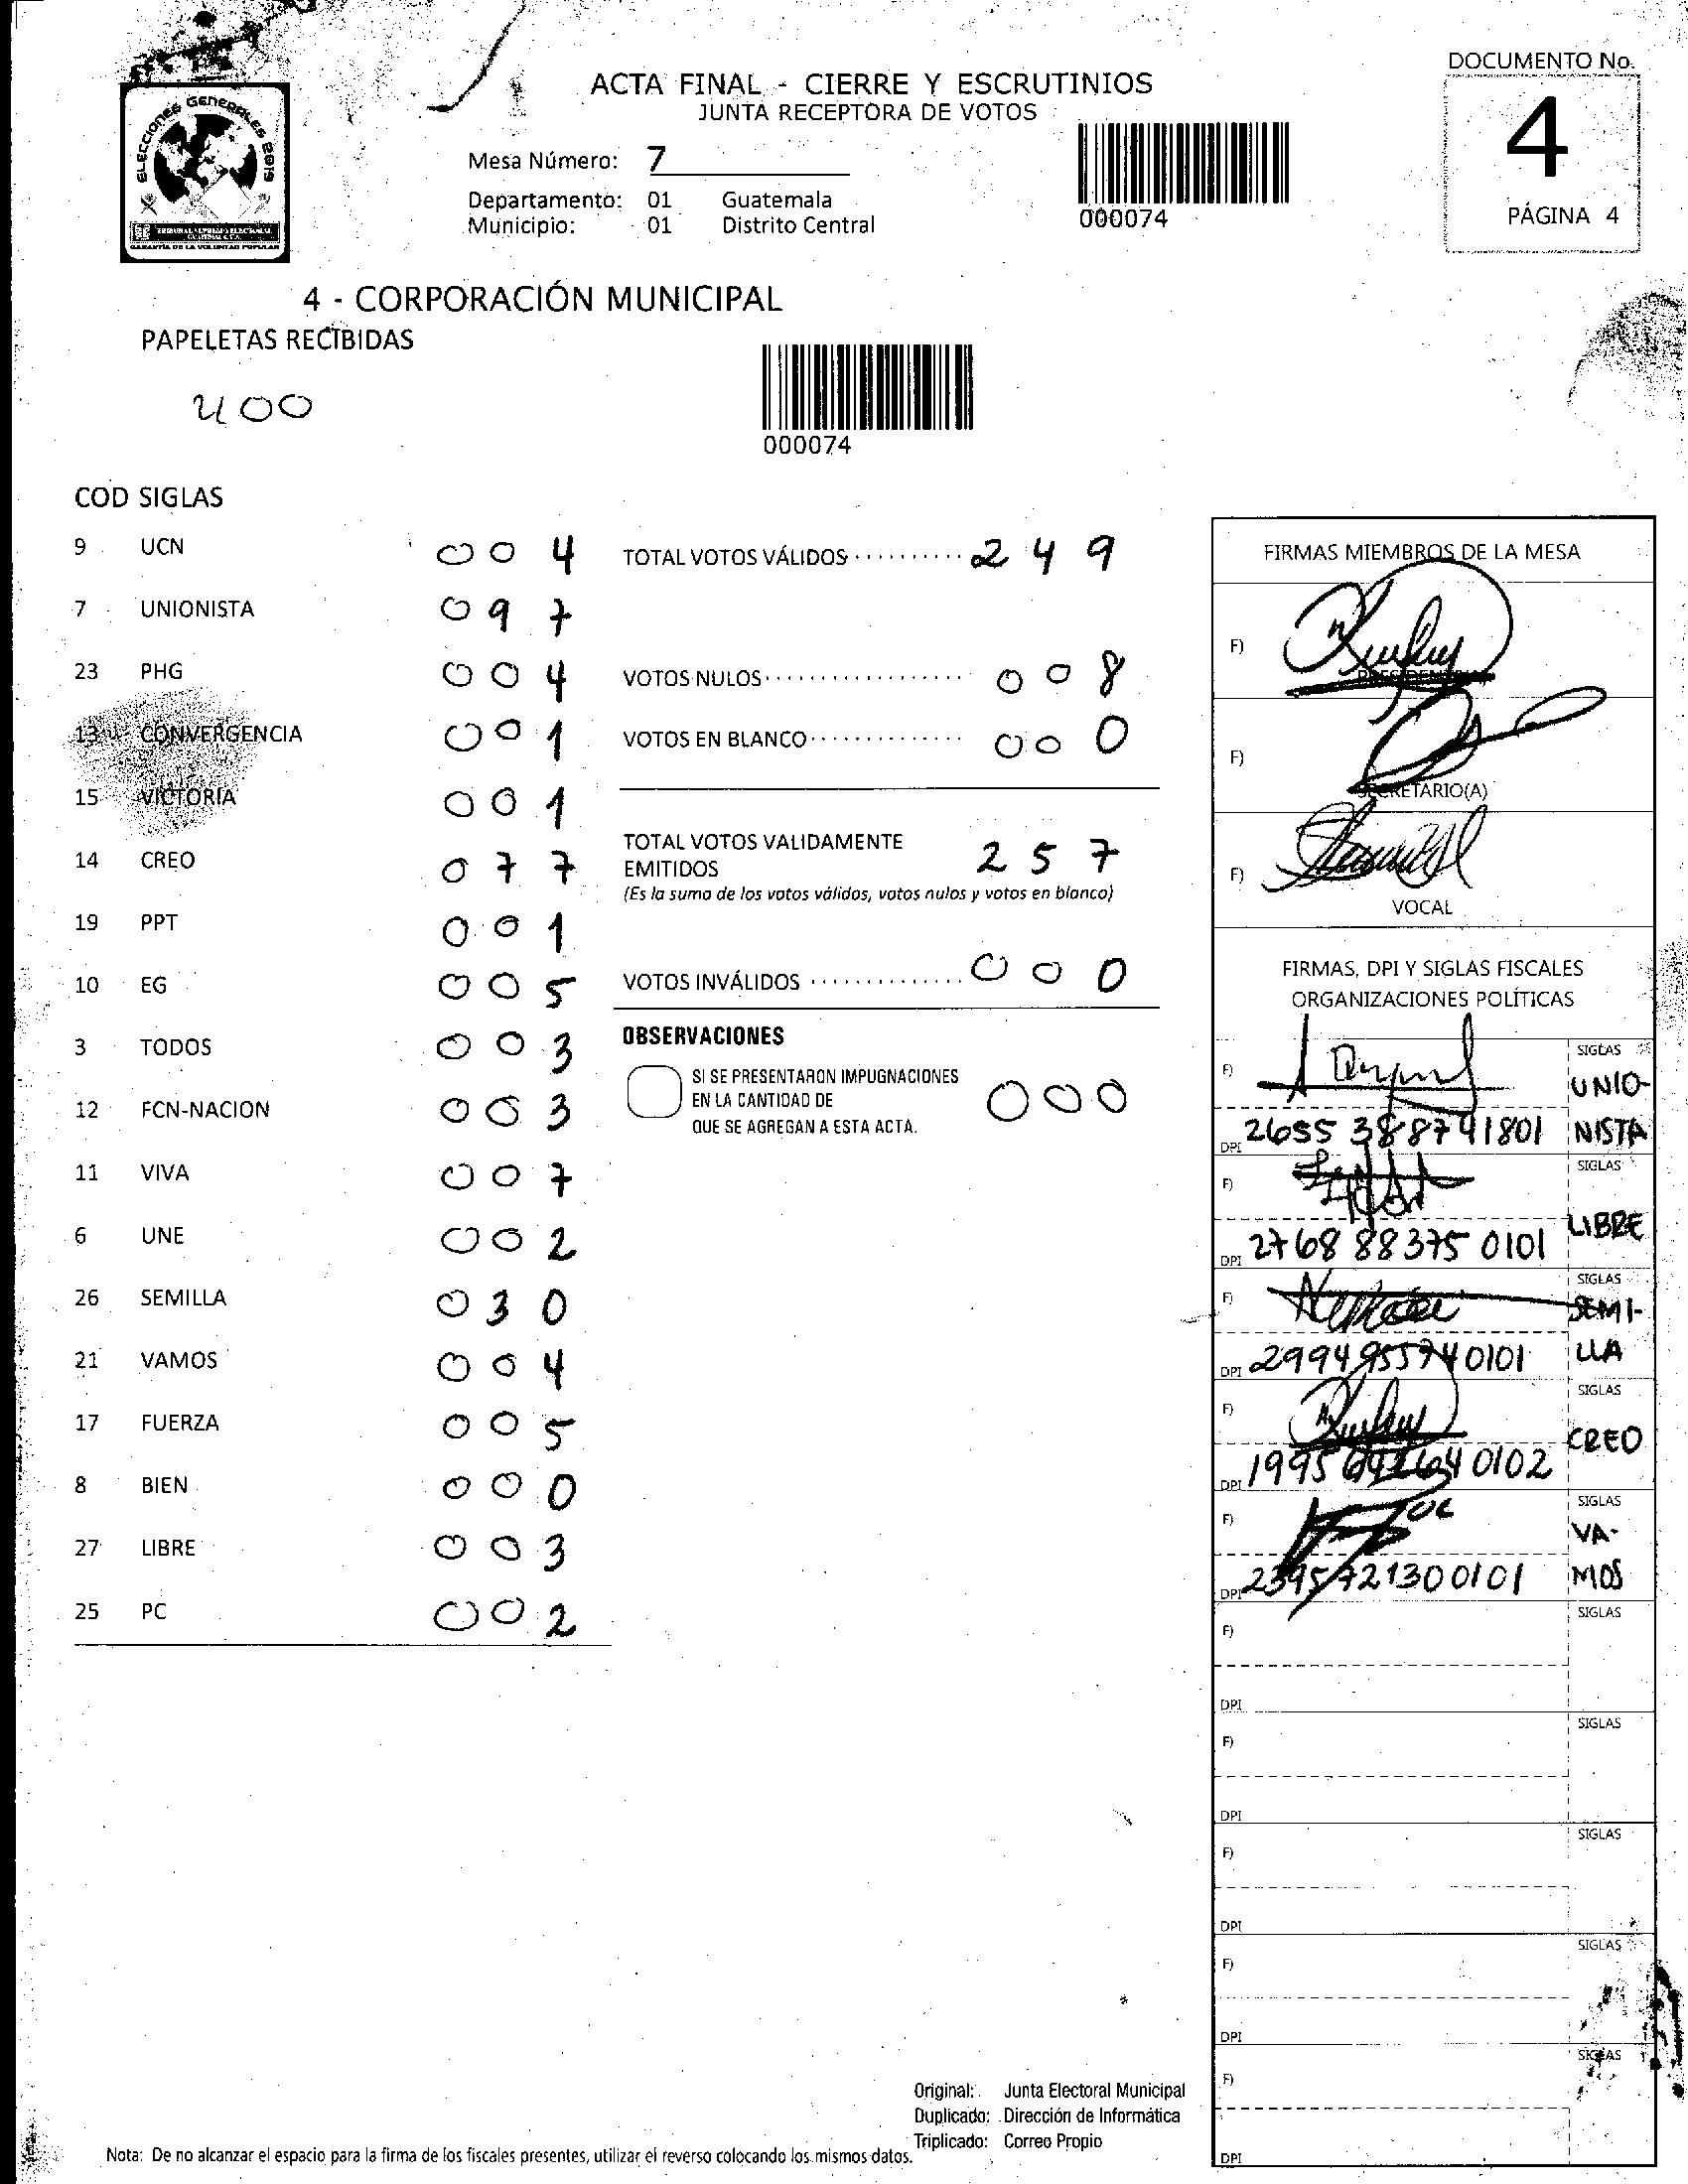 DOCUMENTO No.
ACTA FINAL - CIERRE Y ESCRUTINIOS
JUNTA RECEPTORA DE VOTOS
ELECCIONES GENERALES 2019
TRIBUNAL SUPREMO ELECTORAL
GUATEMALA C.A.
GARANTÍA DE LA VOLUNTAD POPULAR
Mesa Número: 7
Departamento: 01 Guatemala
Municipio: 01 Distrito Central
000074
4
PÁGINA 4
4 - CORPORACIÓN MUNICIPAL
PAPELETAS RECIBIDAS
400
000074
COD SIGLAS
9 UCN 004
7 UNIONISTA 097
23 PHG 004
13 CONVERGENCIA 001
15 VICTORIA 001
14 CREO 077
19 PPT 001
10 EG 005
3 TODOS 003
12 FCN-NACION 003
11 VIVA 007
6 UNE 002
26 SEMILLA 030
21 VAMOS 004
17 FUERZA 005
8 BIEN 000
27 LIBRE 003
25 PC 002
TOTAL VOTOS VÁLIDOS.......... 249
VOTOS NULOS.................. 008
VOTOS EN BLANCO.............. 000
TOTAL VOTOS VALIDAMENTE
EMITIDOS 257
(Es la suma de los votos válidos, votos nulos y votos en blanco)
VOTOS INVÁLIDOS .............. 000
OBSERVACIONES
SI SE PRESENTARON IMPUGNACIONES
EN LA CANTIDAD DE 000
QUE SE AGREGAN A ESTA ACTA.
FIRMAS MIEMBROS DE LA MESA
F)
F)
SECRETARIO(A)
F)
VOCAL
FIRMAS, DPI Y SIGLAS FISCALES
ORGANIZACIONES POLÍTICAS
F) SIGLAS
UNIO-
DPI 2655 388791801 NISTA
F) SIGLAS
LIBRE
DPI 2768 88375 0101
F) SIGLAS
SEMI-
DPI 2994955740101 LLA
F) SIGLAS
CREO
DPI 0102
F) SIGLAS
VA-
DPI MOS
F) SIGLAS
DPI
F) SIGLAS
DPI
F) SIGLAS
DPI
F) SIGLAS
DPI
F) SIGLAS
DPI
Original: Junta Electoral Municipal
Duplicado: Dirección de Informática
Triplicado: Correo Propio
Nota: De no alcanzar el espacio para la firma de los fiscales presentes, utilizar el reverso colocando los mismos datos.